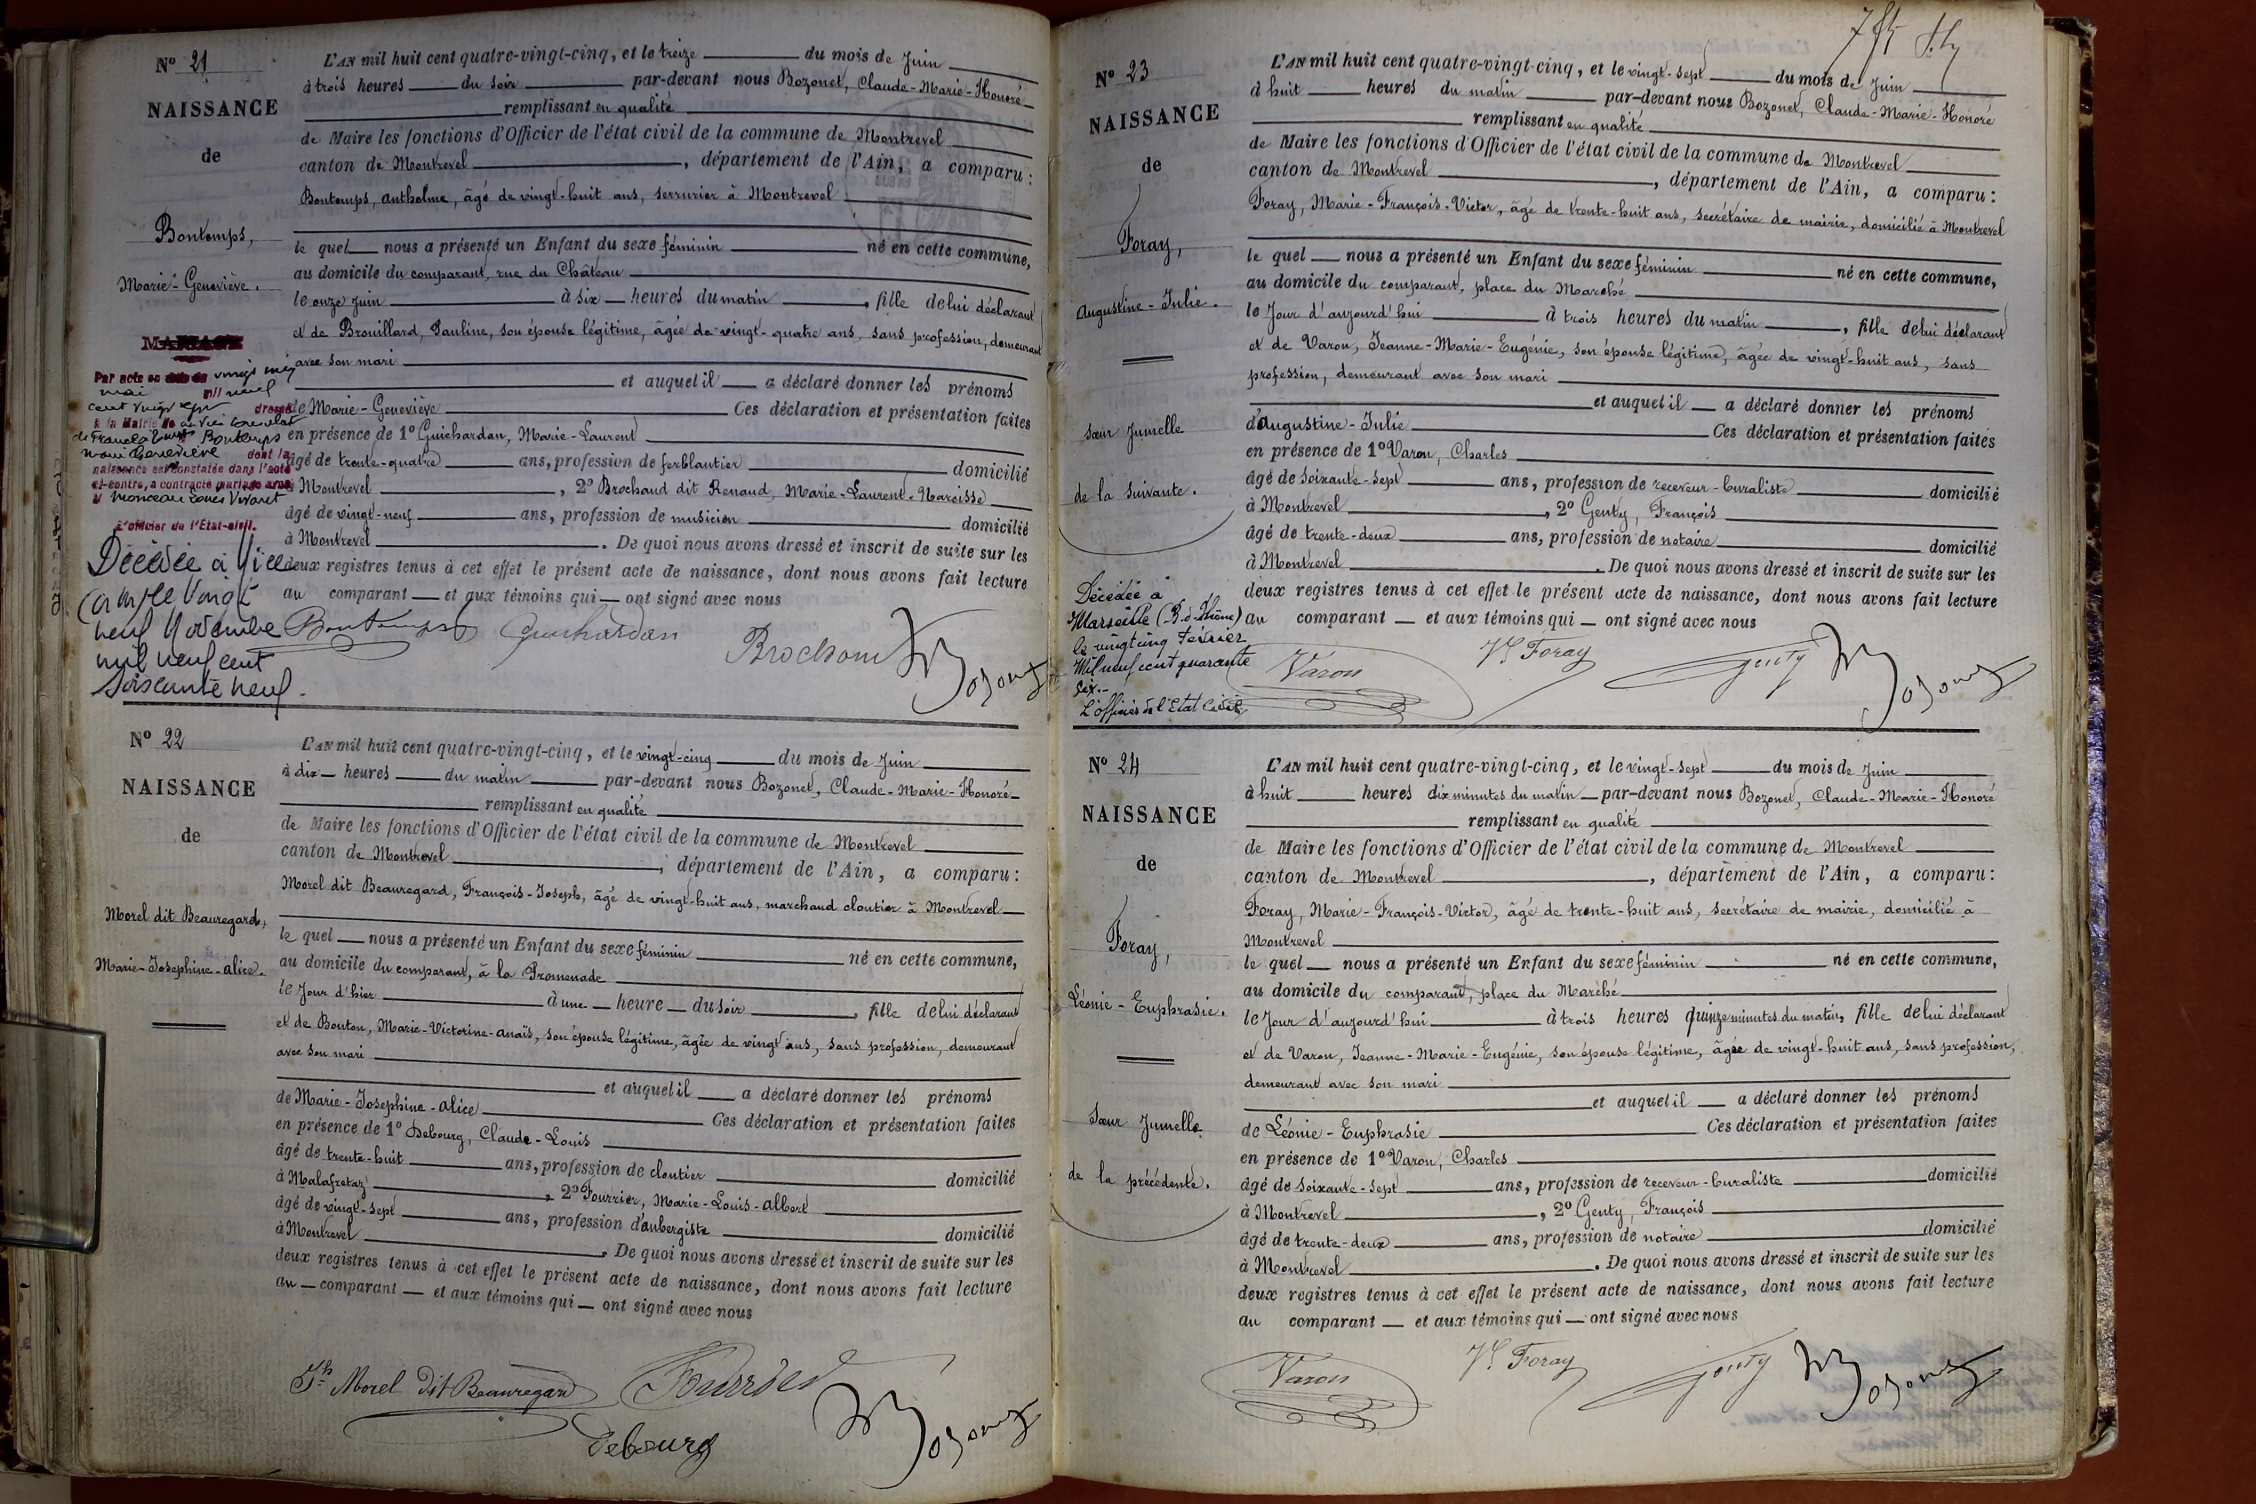 Nº 21
NAISSANCE
de
Bontemps,
Marie-Geneviève.
MARIAGE
Par acte en date du vingt cinq
mai mil neuf
cent vingt sept dressé
à la Mairie de
de France Bontemps
Marie Geneviève dont la
naissance est constatée dans l'acte
ci-contre, a contracté mariage avec
Monceau Vivant
L'officier de l'État-civil.
Décédée à
le vingt
neuf Novembre
mil neuf cent
soixante neuf.
L'AN mil huit cent quatre-vingt-cinq, et le treize du mois de Juin
à trois heures du soir par-devant nous Bozonet, Claude-Marie-Honoré
remplissant en qualité
de Maire les fonctions d'Officier de l'état civil de la commune de Montrevel
canton de Montrevel, département de l'Ain, a comparu:
Bontemps, Anthelme, âgé de vingt-huit ans, serrurier à Montrevel
le quel nous a présenté un Enfant du sexe féminin né en cette commune,
au domicile du comparant, rue du Château
le onze Juin à six heures du matin, fille de lui déclarant
et de Brouillard, Pauline, son épouse légitime, âgée de vingt-quatre ans, sans profession, demeurant
avec son mari
et auquel il a déclaré donner les prénoms
de Marie-Geneviève Ces déclaration et présentation faites
en présence de 1º Guichardan, Marie-Laurent
âgé de trente-quatre ans, profession de ferblantier domicilié
à Montrevel, 2º Brochand dit Renaud, Marie-Laurent-Narcisse
âgé de vingt-neuf ans, profession de musicien domicilié
à Montrevel. De quoi nous avons dressé et inscrit de suite sur les
deux registres tenus à cet effet le présent acte de naissance, dont nous avons fait lecture
au comparant et aux témoins qui ont signé avec nous
Bontemps Guichardan
Brochand Bozonet
Nº 22
NAISSANCE
de
Morel dit Beauregard,
Marie-Josephine-Alice.
L'AN mil huit cent quatre-vingt-cinq, et le vingt-cinq du mois de Juin
à dix heures du matin par-devant nous Bozonet, Claude-Marie-Honoré
remplissant en qualité
de Maire les fonctions d'Officier de l'état civil de la commune de Montrevel
canton de Montrevel, département de l'Ain, a comparu:
Morel dit Beauregard, François-Joseph, âgé de vingt-huit ans, marchand cloutier à Montrevel
le quel nous a présenté un Enfant du sexe féminin né en cette commune,
au domicile du comparant, à la Promenade
le Jour d'hier à une heure du soir, fille de lui déclarant
et de Bouton, Marie-Victorine-Anaïs, son épouse légitime, âgée de vingt ans, sans profession, demeurant
avec son mari
et auquel il a déclaré donner les prénoms
de Marie-Josephine-Alice Ces déclaration et présentation faites
en présence de 1º Debourg, Claude-Louis
âgé de trente-huit ans, profession de cloutier domicilié
à Malafretaz, 2º Fourrier, Marie-Louis-Albert
âgé de vingt-sept ans, profession d'aubergiste domicilié
à Montrevel. De quoi nous avons dressé et inscrit de suite sur les
deux registres tenus à cet effet le présent acte de naissance, dont nous avons fait lecture
au comparant et aux témoins qui ont signé avec nous
Jh Morel dit Beauregard Fourrier
Debourg Bozonet
Nº 23
NAISSANCE
de
Foray,
Augustine-Julie.
sœur Jumelle
de la suivante.
Décédée à
Marseille (B.d.Rhône)
le vingt cinq Février
Mil neuf cent quarante
six.-
L'officier de l'Etat Civil
L'AN mil huit cent quatre-vingt-cinq, et le vingt-sept du mois de Juin
à huit heures du matin par-devant nous Bozonet, Claude-Marie-Honoré
remplissant en qualité
de Maire les fonctions d'Officier de l'état civil de la commune de Montrevel
canton de Montrevel, département de l'Ain, a comparu:
Foray, Marie-François-Victor, âgé de trente-huit ans, secrétaire de mairie, domicilié à Montrevel
le quel nous a présenté un Enfant du sexe féminin né en cette commune,
au domicile du comparant, place du Marché
le Jour d'aujourd'hui à trois heures du matin, fille de lui déclarant
et de Varon, Jeanne-Marie-Eugénie, son épouse légitime, âgée de vingt-huit ans, sans
profession, demeurant avec son mari
et auquel il a déclaré donner les prénoms
d'Augustine-Julie Ces déclaration et présentation faites
en présence de 1º Varon, Charles
âgé de soixante-sept ans, profession de receveur-buraliste domicilié
à Montrevel, 2º Genty, François
âgé de trente-deux ans, profession de notaire domicilié
à Montrevel. De quoi nous avons dressé et inscrit de suite sur les
deux registres tenus à cet effet le présent acte de naissance, dont nous avons fait lecture
au comparant et aux témoins qui ont signé avec nous
Varon Vr Foray Genty Bozonet
Nº 24
NAISSANCE
de
Foray,
Léonie-Euphrasie.
Sœur Jumelle
de la précédente.
L'AN mil huit cent quatre-vingt-cinq, et le vingt-sept du mois de Juin
à huit heures dix minutes du matin par-devant nous Bozonet, Claude-Marie-Honoré
remplissant en qualité
de Maire les fonctions d'Officier de l'état civil de la commune de Montrevel
canton de Montrevel, département de l'Ain, a comparu:
Foray, Marie-François-Victor, âgé de trente-huit ans, secrétaire de mairie, domicilié à
Montrevel
le quel nous a présenté un Enfant du sexe féminin né en cette commune,
au domicile du comparant, place du Marché
le Jour d'aujourd'hui à trois heures quinze minutes du matin, fille de lui déclarant
et de Varon, Jeanne-Marie-Eugénie, son épouse légitime, âgée de vingt-huit ans, sans profession,
demeurant avec son mari
et auquel il a déclaré donner les prénoms
de Léonie-Euphrasie Ces déclaration et présentation faites
en présence de 1º Varon, Charles
âgé de soixante-sept ans, profession de receveur-buraliste domicilié
à Montrevel, 2º Genty, François
âgé de trente-deux ans, profession de notaire domicilié
à Montrevel. De quoi nous avons dressé et inscrit de suite sur les
deux registres tenus à cet effet le présent acte de naissance, dont nous avons fait lecture
au comparant et aux témoins qui ont signé avec nous
Varon Vr Foray Genty Bozonet